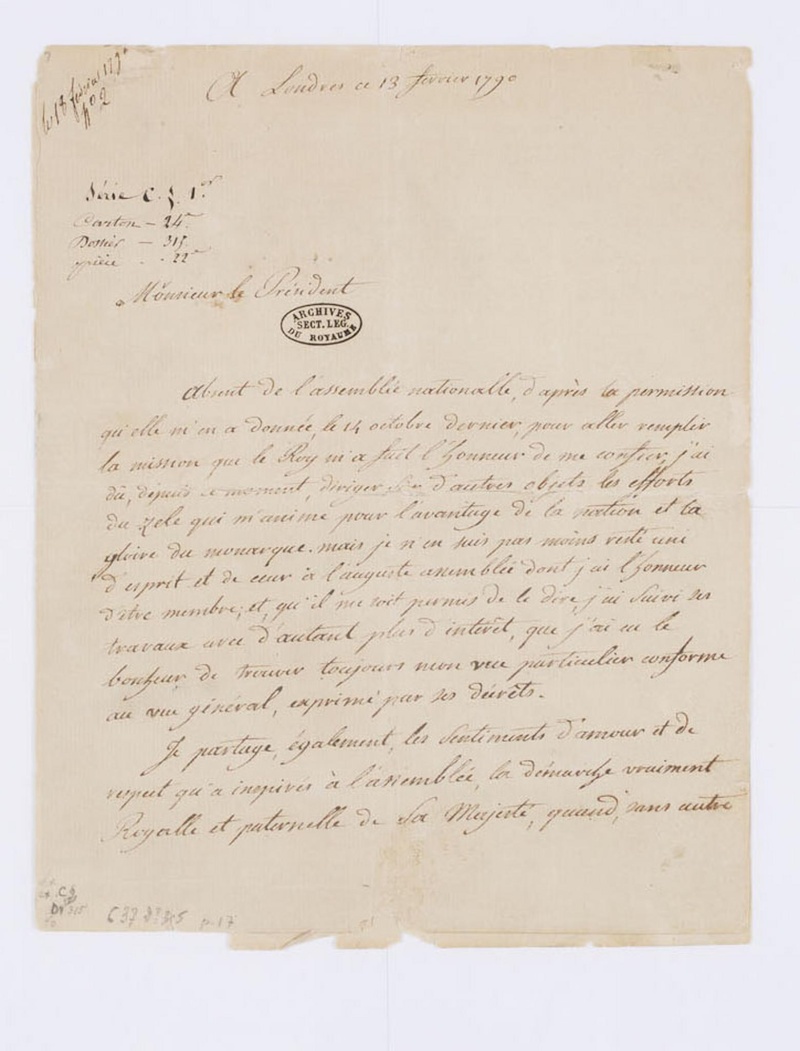 le 18 février 1790
n° 2
A Londres ce 13 fevrier 1790
Série C. §. 1er
Carton - 24.
Dossier - 315.
pièce - 22
Monsieur le Président
ARCHIVES
SECT. LEG.
DU ROYAUME
absent de l'assemblée nationalle, d'après la permission
qu'elle m'en a donnée, le 14 octobre dernier, pour aller remplir
la mission que le Roy m'a fait l'honneur de me confier, j'ai
dû, depuis ce moment, diriger sur d'autres objets les efforts
du zele qui m'anime pour l'avantage de la nation et la
gloire du monarque. mais je n'en suis pas moins resté uni
d'esprit et de cœur à l'auguste assemblée dont j'ai l'honneur
d'être membre; et, qu'il me soit permis de le dire, j'ai suivi ses
travaux avec d'autant plus d'intérêt, que j'ai eu le
bonheur de trouver toujours mon vœu particulier conforme
au vœu général, exprimé par ses décrets.
Je partage, également, les sentiments d'amour et de
respect qu'a inspirés à l'assemblée, la démarche vraiment
Royalle et paternelle de Sa Majesté, quand, sans autre
C 37 D 315 p. 17